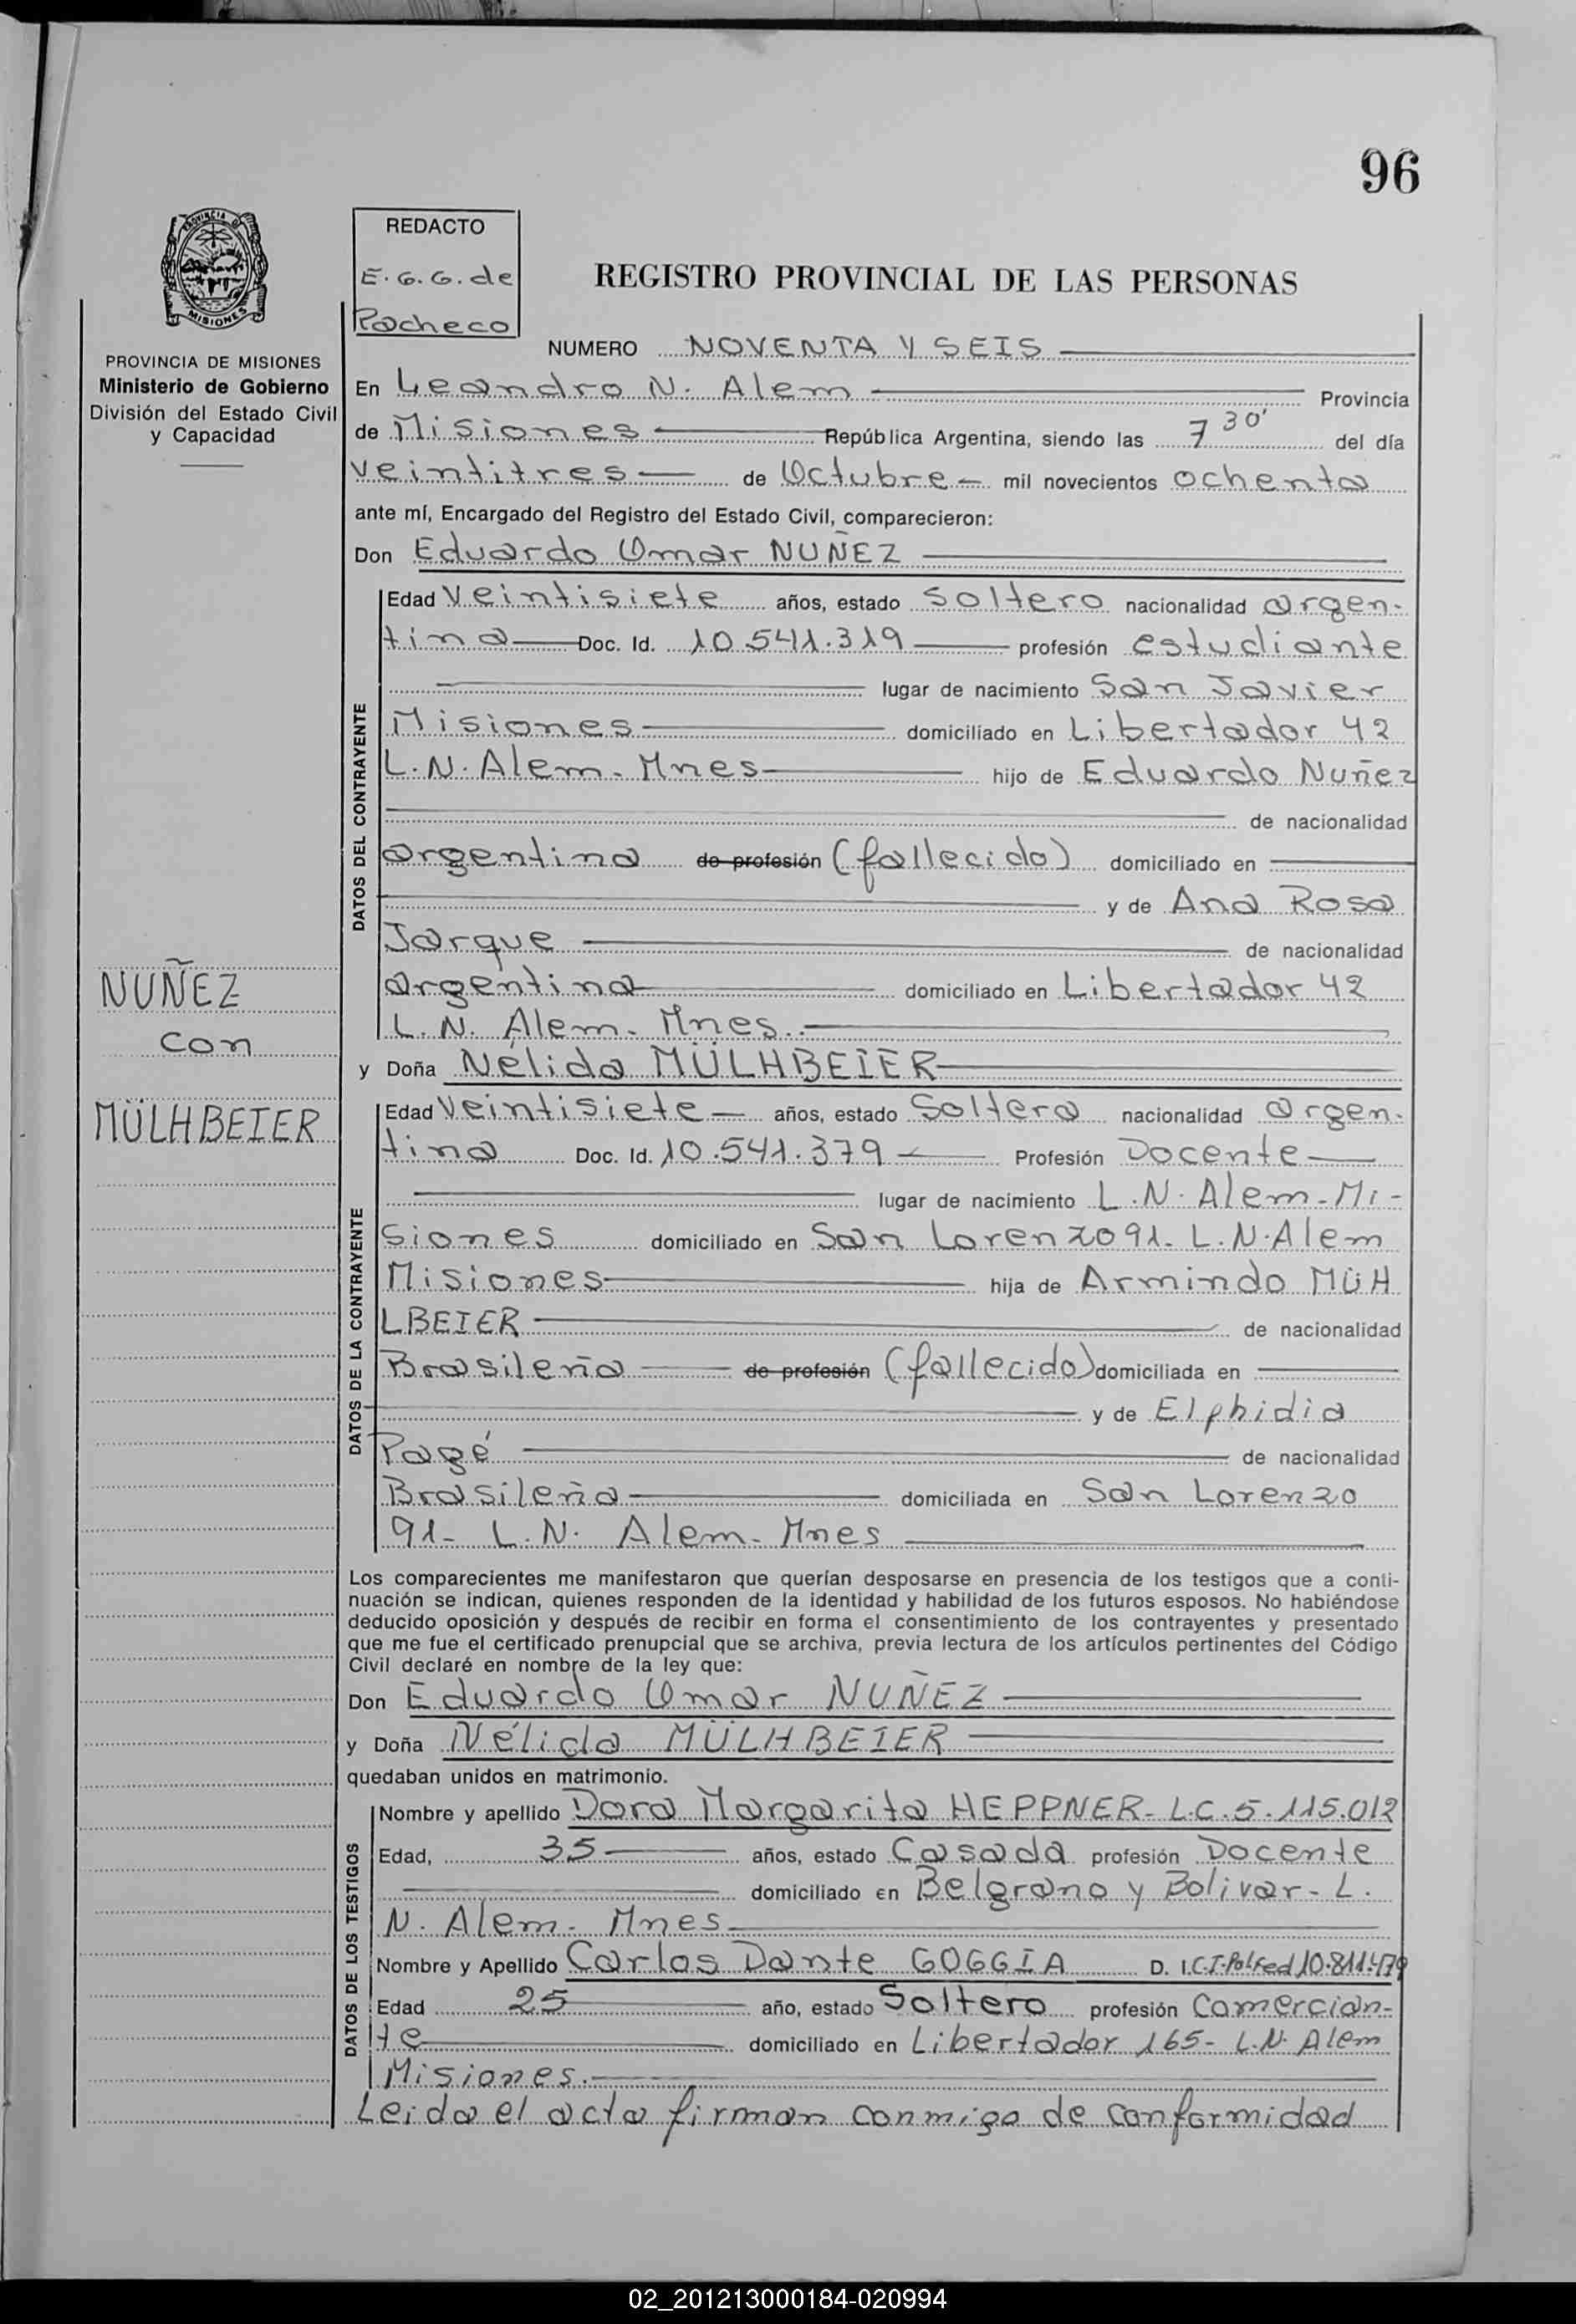 96
PROVINCIA DE MISIONES
Ministerio de Gobierno
División del Estado Civil
y Capacidad
NUÑEZ
con
MÜLHBEIER
REDACTO
E.G.G. de
Pacheco
REGISTRO PROVINCIAL DE LAS PERSONAS
NUMERO NOVENTA Y SEIS
En Leandro N. Alem Provincia
de Misiones República Argentina, siendo las 7 30' del día
veintitres de Octubre mil novecientos ochenta
ante mí, Encargado del Registro del Estado Civil, comparecieron:
Don Eduardo Omar NUÑEZ
DATOS DEL CONTRAYENTE
Edad Veintisiete años, estado Soltero nacionalidad argen-
tina Doc. Id. 10.541.319 profesión estudiante
lugar de nacimiento San Javier
Misiones domiciliado en Libertador 42
L.N. Alem. Mnes hijo de Eduardo Nuñez
de nacionalidad
argentina de profesión (fallecido) domiciliado en
y de Ana Rosa
Jarque de nacionalidad
argentina domiciliado en Libertador 42
L.N. Alem. Mnes.
y Doña Nélida MÜLHBEIER
DATOS DE LA CONTRAYENTE
Edad Veintisiete años, estado Soltera nacionalidad argen-
tina Doc. Id. 10.541.379 Profesión Docente
lugar de nacimiento L.N. Alem-Mi-
siones domiciliado en San Lorenzo 91- L.N. Alem
Misiones hija de Armindo MÜH
LBEIER de nacionalidad
Brasileña de profesión (fallecido) domiciliada en
y de Elphidia
Pagé de nacionalidad
Brasileña domiciliada en San Lorenzo
91- L.N. Alem- Mnes
Los comparecientes me manifestaron que querían desposarse en presencia de los testigos que a conti-
nuación se indican, quienes responden de la identidad y habilidad de los futuros esposos. No habiéndose
deducido oposición y después de recibir en forma el consentimiento de los contrayentes y presentado
que me fue el certificado prenupcial que se archiva, previa lectura de los artículos pertinentes del Código
Civil declaré en nombre de la ley que:
Don Eduardo Omar NUÑEZ
y Doña Nélida MÜLHBEIER
quedaban unidos en matrimonio.
DATOS DE LOS TESTIGOS
Nombre y apellido Dora Margarita HEPPNER- L.C. 5.115.012
Edad, 35 años, estado Casada profesión Docente
domiciliado en Belgrano y Bolivar- L.
N. Alem- Mnes.
Nombre y Apellido Carlos Dante GOGGIA D. I.C.I. Pol Fed 10.811.479
Edad 25 año, estado Soltero profesión Comercian-
te domiciliado en Libertador 165- L.N. Alem
Misiones.
Leida el acta firman conmigo de conformidad
02_201213000184-020994